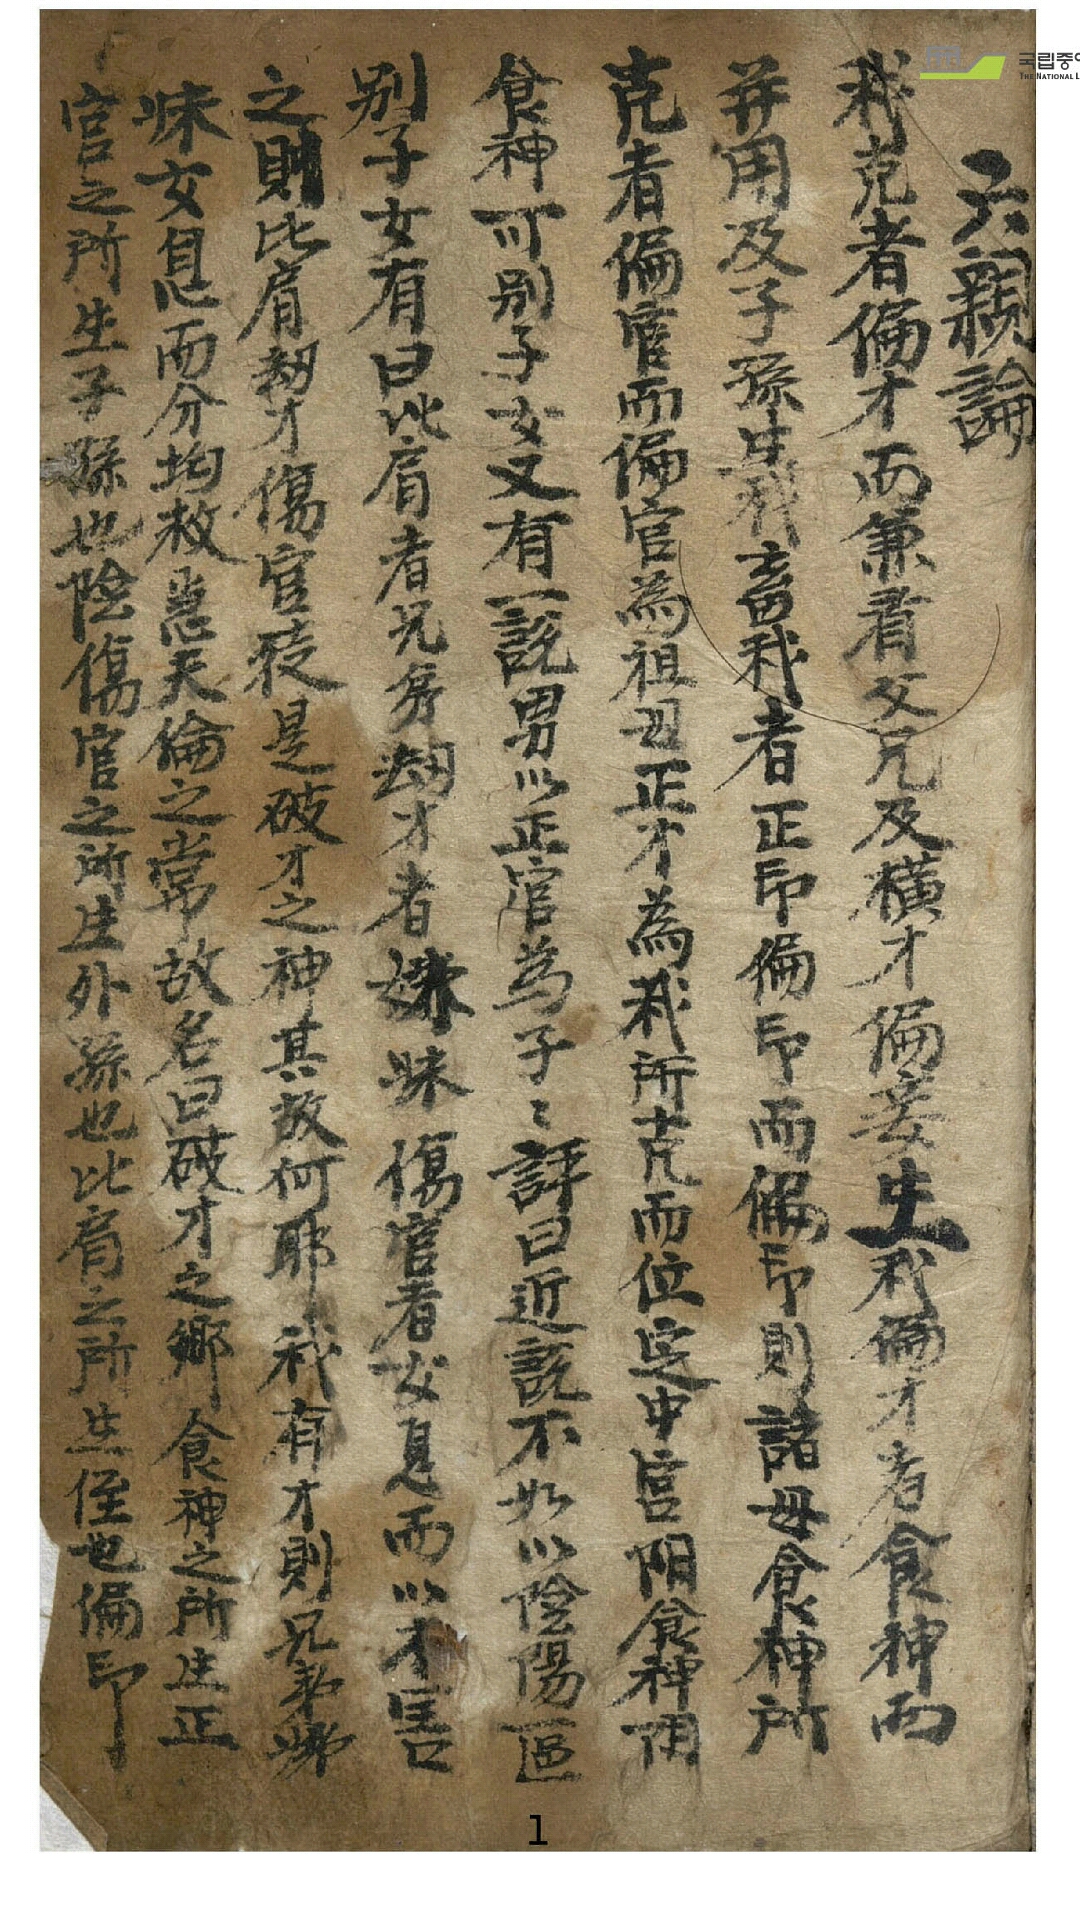 국립중
THE NATIONAL L
六親論
我克者偏才而兼看父兄及橫才偏妾生我偏才者食神而
并用及子孫生我畜我者正印偏印而偏印則諸母食神所
克者偏官而偏官為祖母正才為我所克而位定中宮陽食神陰
食神可別子女又有一說男以正官為子〻評曰近說不如以陰陽區
別子女有曰比肩者兄弟劫才者姊妹傷官者女息而以才害
之則比肩劫才傷官疑是破才之神其故何耶我有才則兄弟姊
妹女息而分均救急天倫之常故名曰破才之鄉食神之所生正
官之所生子孫也陰傷官之所生外孫也比肩之所生侄也偏印
1